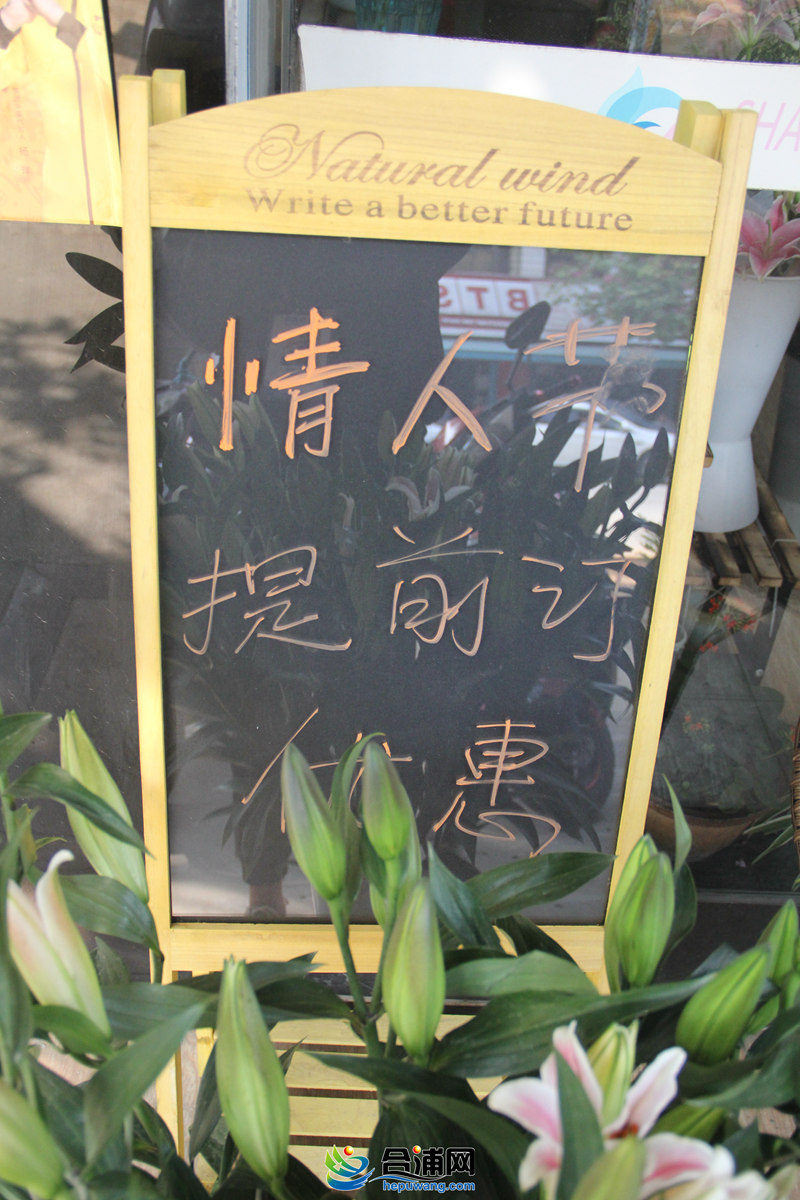 SHA
Natural wind
Write a better future
BTS
情人节
提前订
优惠
合浦网
hepuwang.com